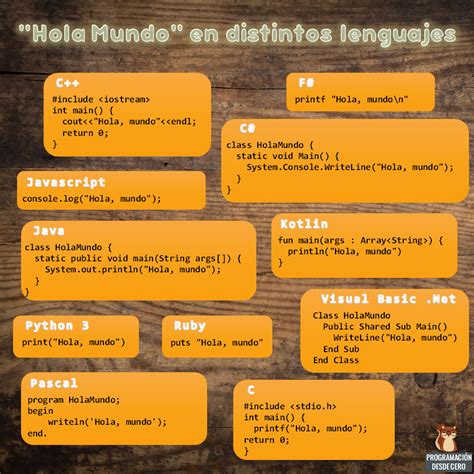 "Hola Mundo" en distintos lenguajes
C++
#include <iostream>
int main() {
cout<<"Hola, mundo"<<endl;
return 0;
}
F#
printf "Hola, mundo\n"
C#
class HolaMundo {
static void Main() {
System.Console.WriteLine("Hola, mundo");
}
}
Javascript
console.log("Hola, mundo");
Java
class HolaMundo {
static public void main(String args[]) {
System.out.println("Hola, mundo");
}
}
Kotlin
fun main(args : Array<String>) {
println("Hola, mundo")
}
Visual Basic .Net
Class HolaMundo
Public Shared Sub Main()
WriteLine("Hola, mundo")
End Sub
End Class
Python 3
print("Hola, mundo")
Ruby
puts "Hola, mundo"
Pascal
program HolaMundo;
begin
writeln('Hola, mundo');
end.
C
#include <stdio.h>
int main() {
printf("Hola, mundo");
return 0;
}
PROGRAMACIÓN
DESDE CERO